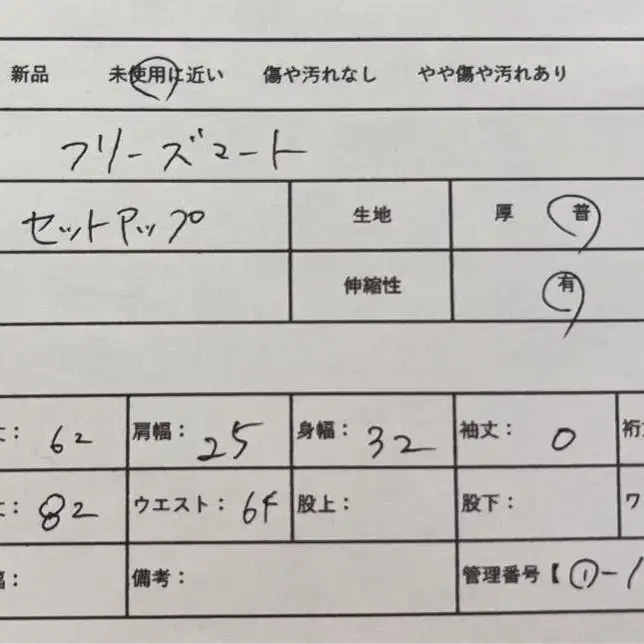 新品 未使用に近い 傷や汚れなし やや傷や汚れあり
フリーズマート
セットアップ 生地 厚 普
伸縮性 有
丈： 62 肩幅： 25 身幅： 32 袖丈： 0 裄
丈： 82 ウエスト： 64 股上： 股下： ワ
幅： 備考： 管理番号【 ①-1